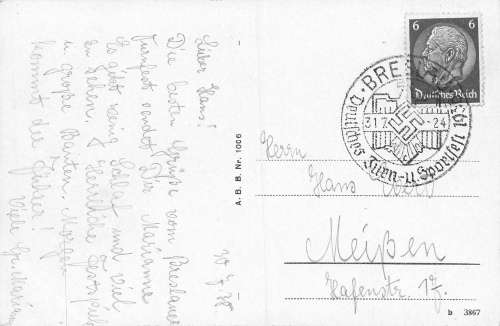 Lieber Hans!
Die besten Grüße vom Breslauer
Turnfest sendet Dir Marianne
Es gibt wenig Schlaf und viel
zu sehen. Herrliche Festspiele
u. große Bauten. Morgen
kommt der Führer!
Viele Gr. Mariann
30. 7. 38
A. B. B. Nr. 1006
6 6
Deutsches Reich
BRESLAU
31.7. - 24
Deutsches Turn- u. Sportfest 1938
Herrn
Hans
Meißen
Hafenstr. 17.
b 3867